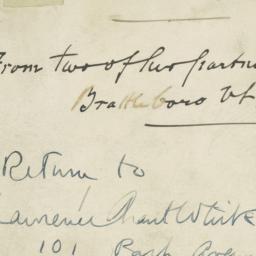 From two of his partn
Brattleboro Vt
Return to
Lawrence Grant White
101 Park Aven